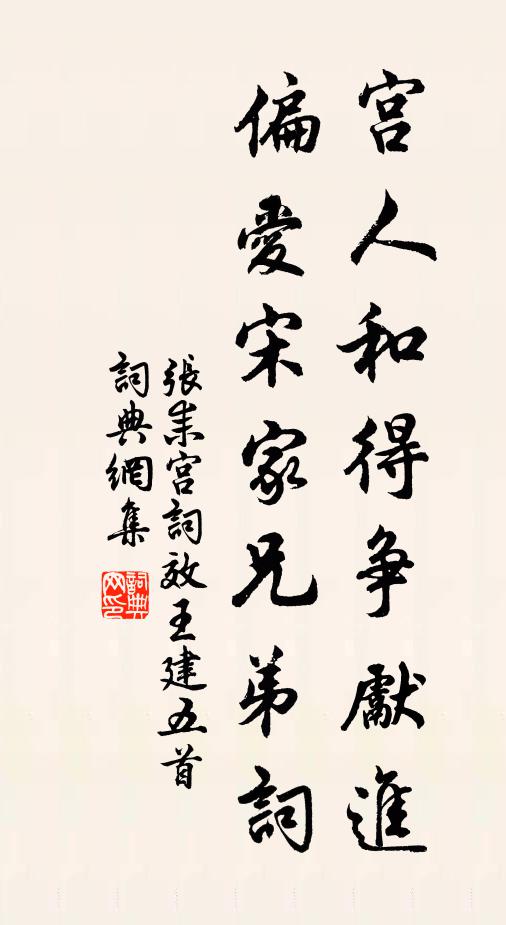 宫人和得争獻進
偏愛宋家兄弟詞
張耒宫詞效王建五首
詞典網集
詞典网印